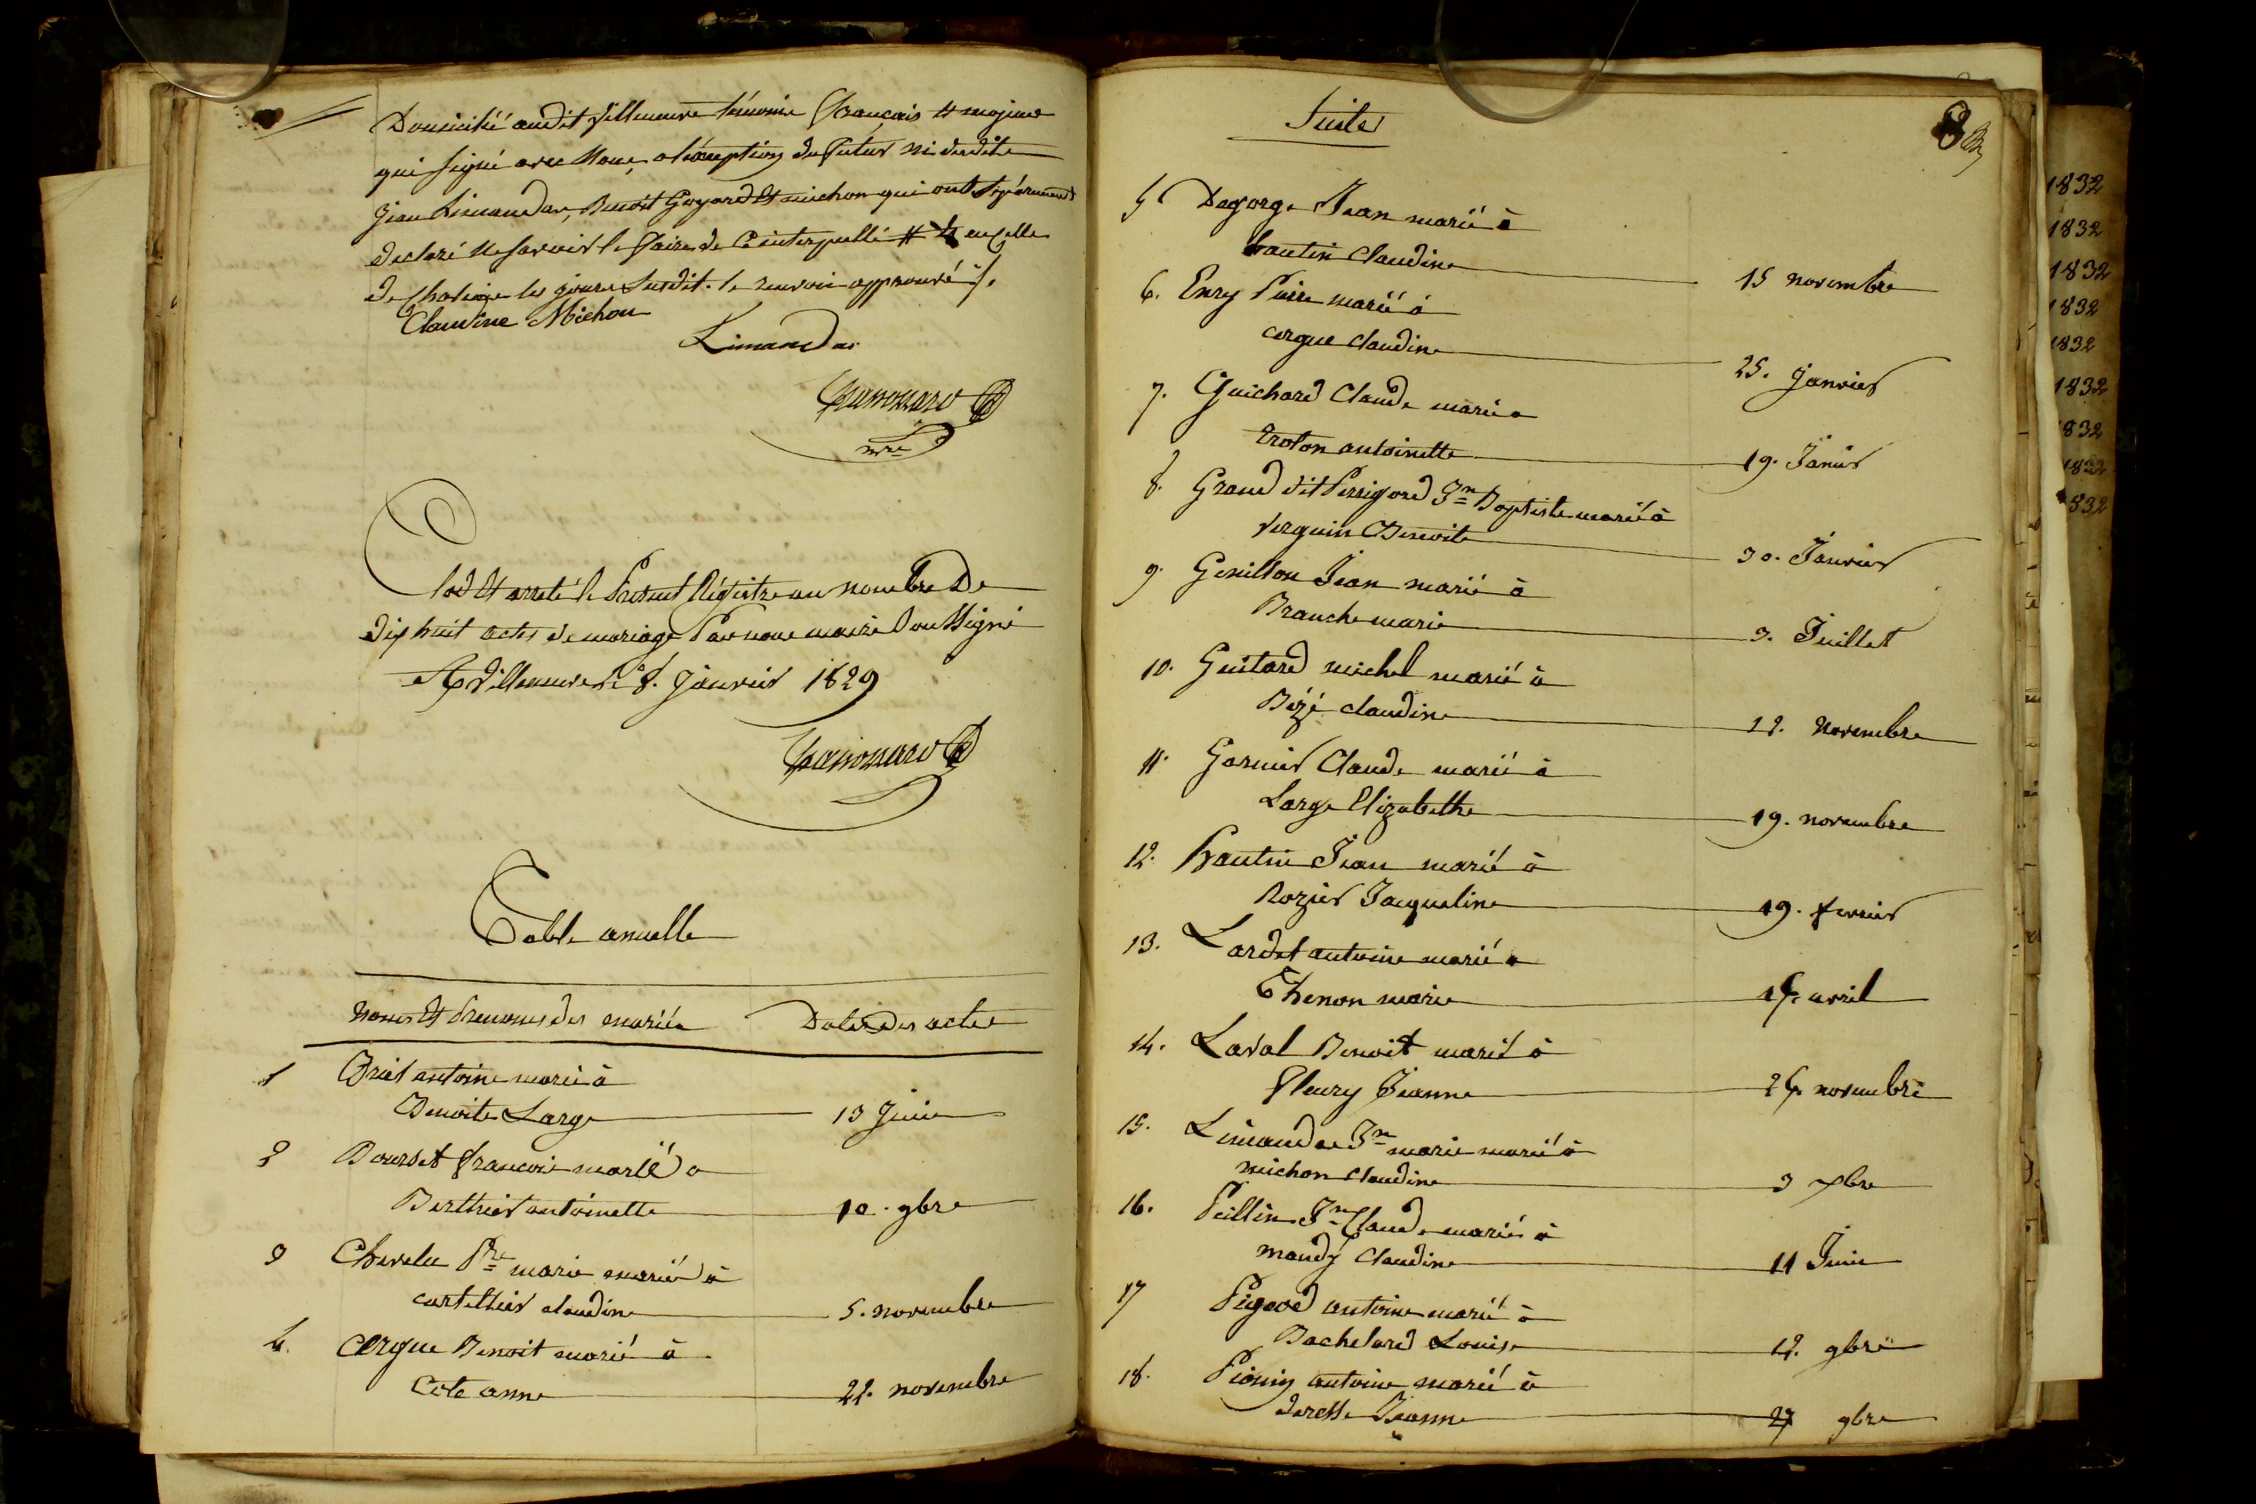 Domicilié audit Villeneuve témoins français et majeur
qui signé avec nous, a l'éxeption du futur ni desdits
Jean Limandas, Benoit Goyard et michon qui ont séparément
declaré ne savoir le faire de ce interpellé
de les jours susdit. le renvoi approuvé ./.
Claudine Michon
Limandas
mre
Clos et arreté le Présent Régistre au nombre De
dix huit actes de mariage Par nous maire Soussigné
A Villeneuve le 8. Janvier 1829
Table anuelle
Noms et Prenoms des mariés Dates des actes
1 Briel antoine marié à
Benoite Large 13 Juin
2 Bourset francois marié a
Berthier antoinette 10. 9bre
3 Chevelu Pre marie marié à
cartellier claudine 5. novembre
4. Cergue Benoit marié à
Cote anne 22. novembre
Suite
5 Degorge Jean marié à
hautin claudine 15 novembre
6. Enry Pierre marié à
cergue claudine 25. Janvier
7. Guichard Claude marié a
Troton antoinette 19. Janvier
8. Grand dit Perrigord Jn Baptiste marié à
Verguin Benoite 30. Janvier
9. Genillon Jean marié à
Branche marie 3. Juillet
10. Guitard michel marié à
Bézé claudine 12. Novembre
11. Garnier Claude marié à
Large Elizabethe 19. novembre
12. hautin Jean marié à
Rozier Jacqueline 19. fevrier
13. Lardet antoine marié a
Thenon marie avril
14. Laval Benoit marié à
fleury Jeanne novembre
15. Limandas Jn marie marié à
michon claudine 3 xbre
16. Peillin Jn Claude marié à
mandy Claudine 11 Juin
17 Pigeord antoine marié à
Bachelard Louise 12. 9bre
18. Pionin antoine marié à
Jeanne 27 9bre
1832
1832
1832
1832
1832
1832
1832
1832
832